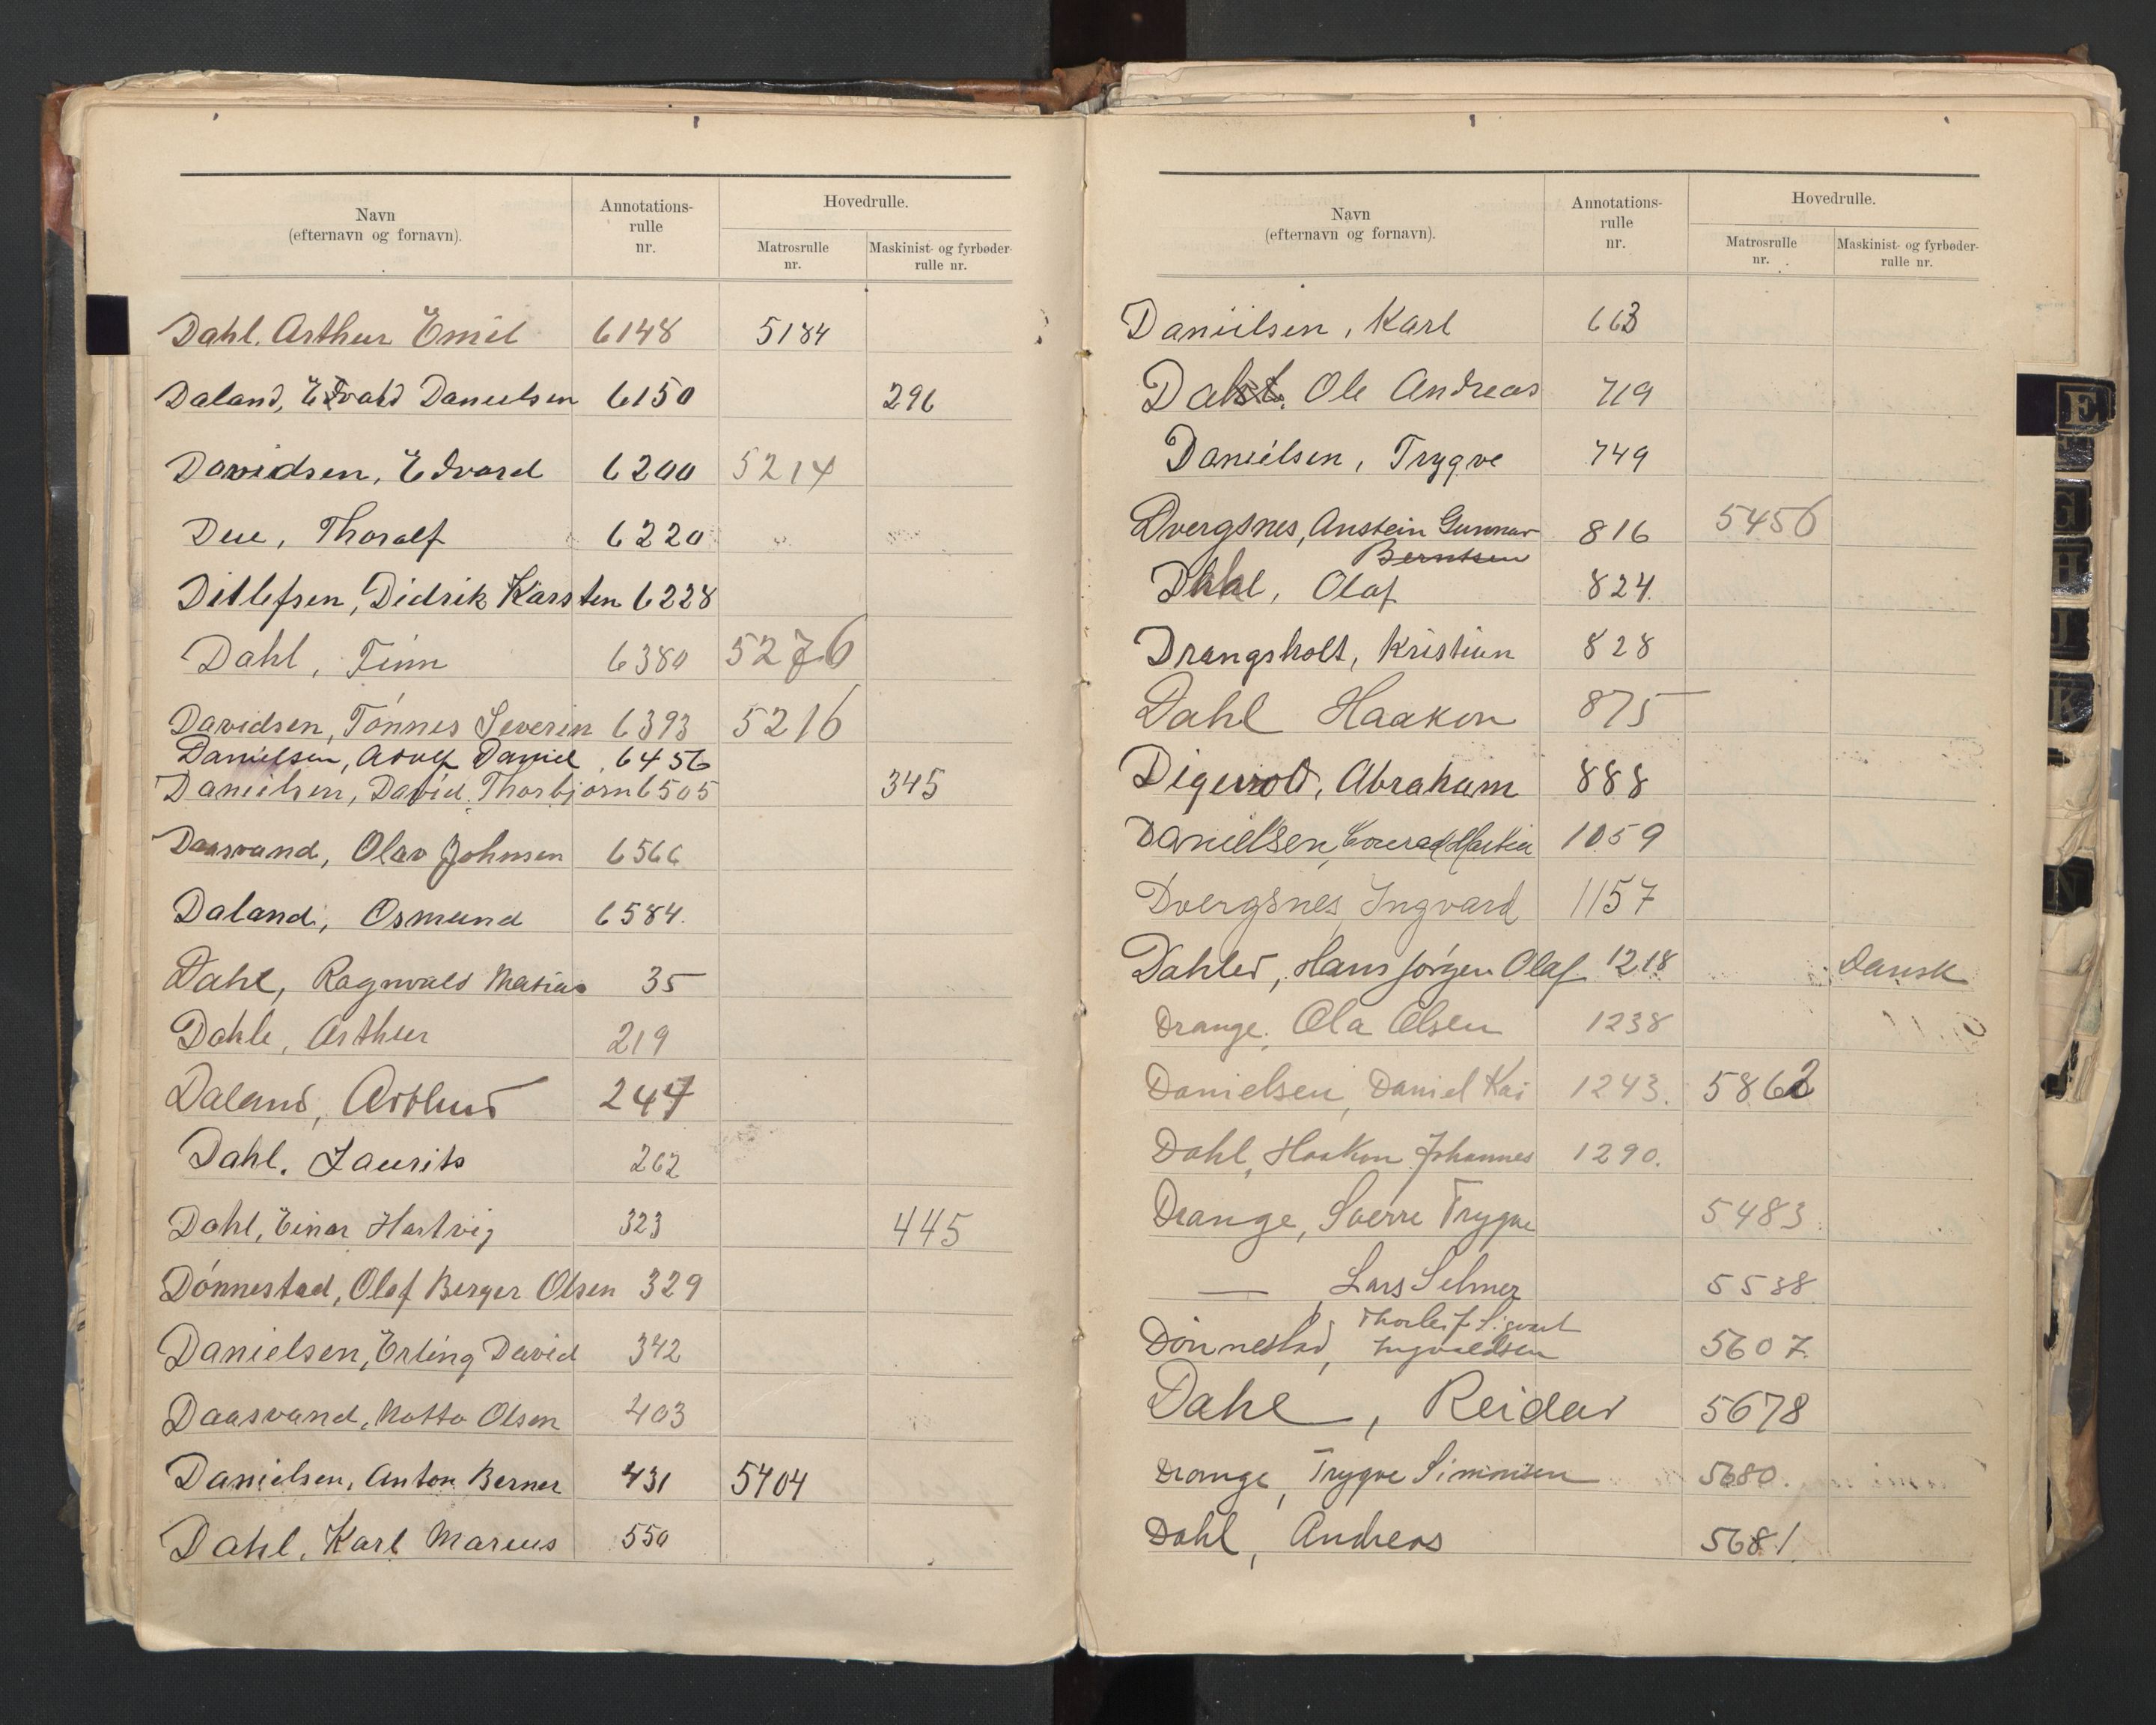 Navn
(efternavn og fornavn).
Annotations-
rulle
nr.
Hovedrulle.
Matrosrulle
nr.
Maskinist- og fyrbøder-
rulle nr.
Dahl. Arthur Emil 6148 5184
Daland, Edvald Danielsen 6150 296
Davidsen, Edvard 6200 5214
Due, Thoralf 6220
Ditlefsen, Didrik Karsten 6228
Dahl, Finn 6380 5276
Davidsen, Tønnes Severin 6393 5216
Danielsen, Adolf Daniel 6456
Danielsen, David Thorbjørn 6505 345
Daasvand, Olav Johnsen 6566
Daland, Osmund 6584.
Dahl, Ragnvald Matias 35
Dahle, Arthur 219
Daland, 247
Dahl. Laurits 262
Dahl, Einar Hartvig 323 445
Dønnestad, Olaf Berger Olsen 329
Danielsen, Erling David 342
Daasvand, Notto Olsen 403
Danielsen, Anton Berner 431 5404
Dahl, Karl Marius 550
Navn
(efternavn og fornavn).
Annotations-
rulle
nr.
Hovedrulle.
Matrosrulle
nr.
Maskinist- og fyrbøder-
rulle nr.
Danielsen, Karl 663
Ole Andreas 719
Danielsen, Trygve 749
Dvergsnes, Anstein Gunnar 816 5456
Berntsen
Dahl, Olaf 824.
Drangsholt, Kristian 828
Dahl Haakon 875
Digervold, Abraham 888
Danielsen, Conrad Martin 1059
Dvergsnes Ingvard 1157
Dahler, Hans Jørgen Olaf 1218 Dansk
Drange. Ola Olsen 1238
Danielsen, Daniel Kai 1243. 5862
Dahl, Haakon Johannes 1290.
Drange, Sverre Trygve 5483
— Lars Selmer 5538
Thorleif Sigvart
Dønnestad, Ingvaldsen 5607.
Dahl, Reidar 5678
Drange, Trygve Simonsen 5680.
Dahl, Andreas 5681
E
G
H
J
K
N